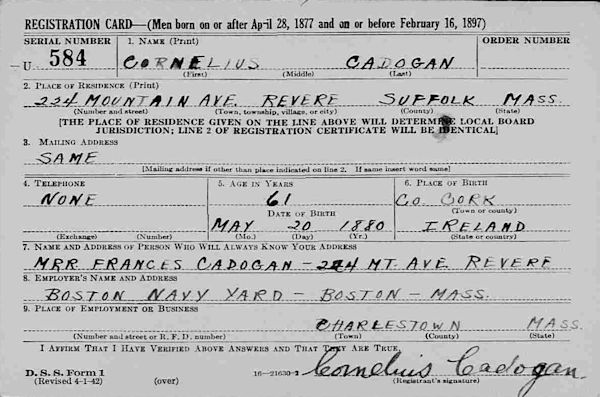 REGISTRATION CARD—(Men born on or after April 28, 1877 and on or before February 16, 1897)
SERIAL NUMBER 1. NAME (Print) ORDER NUMBER
U 584 CORNELIUS CADOGAN
(First) (Middle) (Last)
2. PLACE OF RESIDENCE (Print)
224 MOUNTAIN AVE. REVERE SUFFOLK MASS.
(Number and street) (Town, township, village, or city) (County) (State)
[THE PLACE OF RESIDENCE GIVEN ON THE LINE ABOVE WILL DETERMINE LOCAL BOARD
JURISDICTION; LINE 2 OF REGISTRATION CERTIFICATE WILL BE IDENTICAL]
3. MAILING ADDRESS
SAME
[Mailing address if other than place indicated on line 2. If same insert word same]
4. TELEPHONE 5. AGE IN YEARS 6. PLACE OF BIRTH
NONE 61 CO. CORK
DATE OF BIRTH (Town or county)
MAY 20 1880 IRELAND
(Exchange) (Number) (Mo.) (Day) (Yr.) (State or country)
7. NAME AND ADDRESS OF PERSON WHO WILL ALWAYS KNOW YOUR ADDRESS
MRR. FRANCES CADOGAN - 224 MT. AVE. REVERE
8. EMPLOYER'S NAME AND ADDRESS
BOSTON NAVY YARD - BOSTON - MASS.
9. PLACE OF EMPLOYMENT OR BUSINESS
CHARLESTOWN MASS.
(Number and street or R. F. D. number) (Town) (County) (State)
I AFFIRM THAT I HAVE VERIFIED ABOVE ANSWERS AND THAT THEY ARE TRUE.
D. S. S. Form 1
(Revised 4-1-42) (over) 16—21630-2 Cornelius Cadogan.
(Registrant's signature)